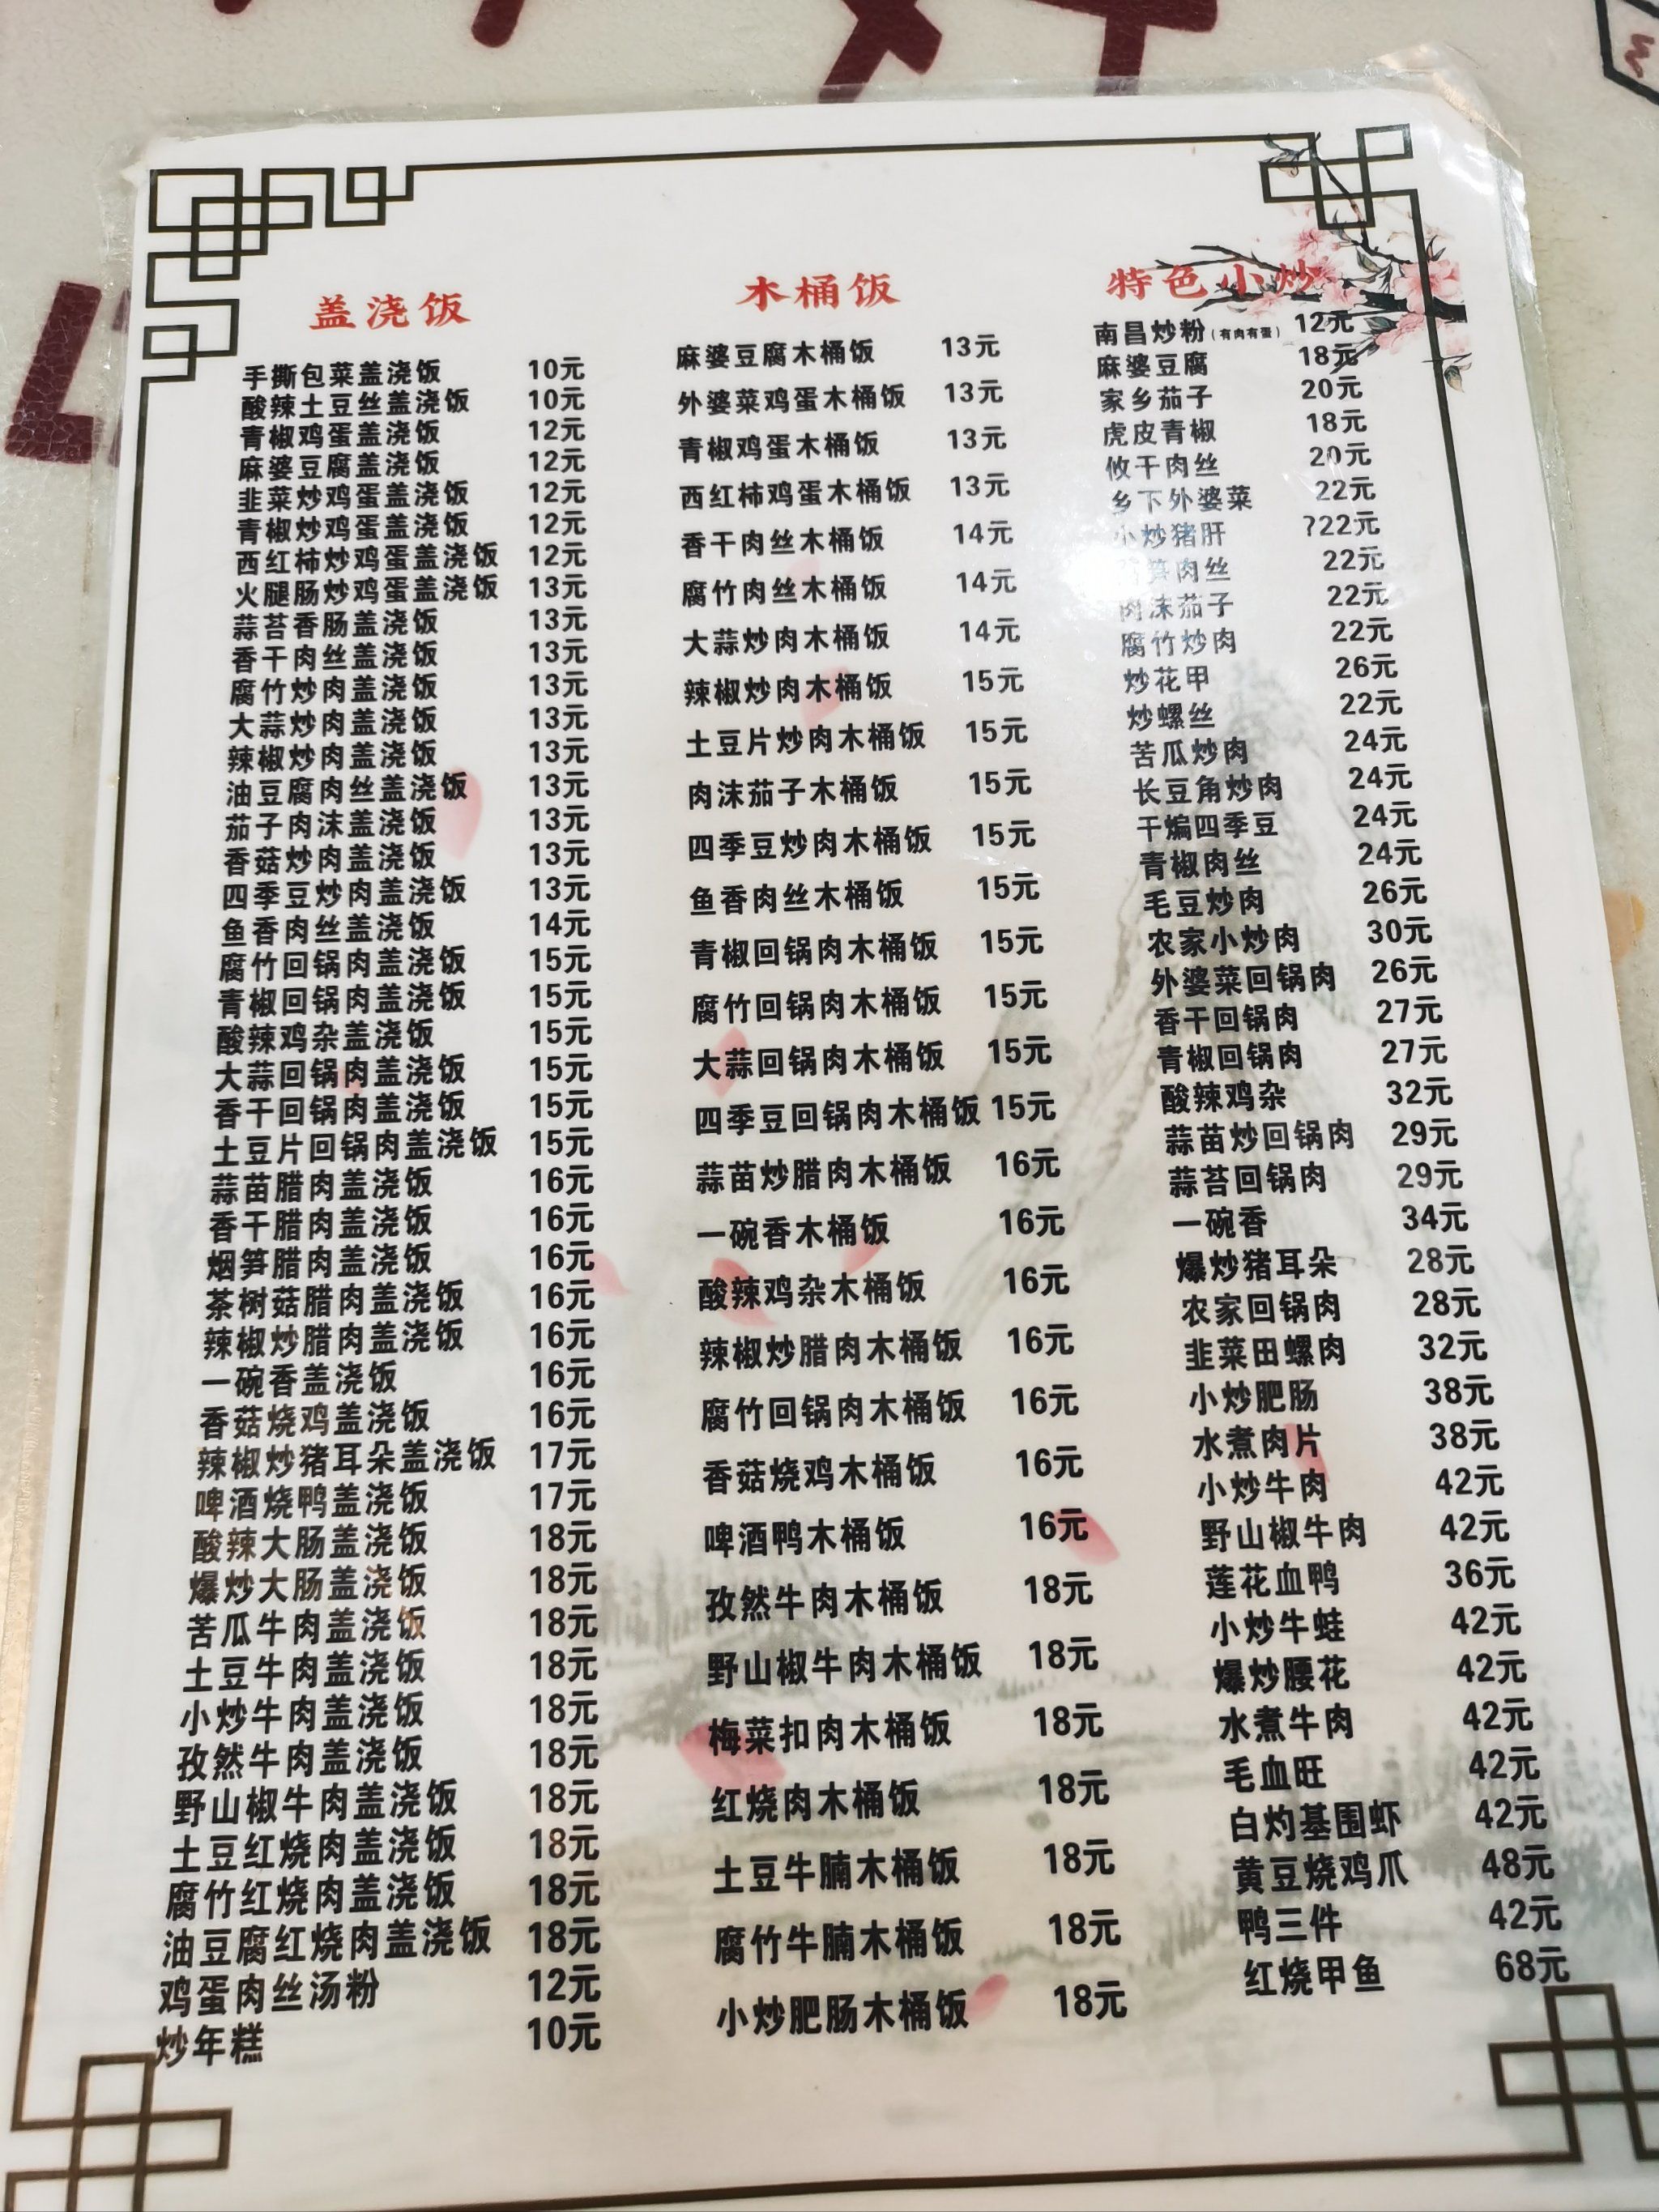 盖浇饭
手撕包菜盖浇饭 10元
酸辣土豆丝盖浇饭 10元
青椒鸡蛋盖浇饭 12元
麻婆豆腐盖浇饭 12元
韭菜炒鸡蛋盖浇饭 12元
青椒炒鸡蛋盖浇饭 12元
西红柿炒鸡蛋盖浇饭 12元
火腿肠炒鸡蛋盖浇饭 13元
蒜苔香肠盖浇饭 13元
香干肉丝盖浇饭 13元
腐竹炒肉盖浇饭 13元
大蒜炒肉盖浇饭 13元
辣椒炒肉盖浇饭 13元
油豆腐肉丝盖浇饭 13元
茄子肉沫盖浇饭 13元
香菇炒肉盖浇饭 13元
四季豆炒肉盖浇饭 13元
鱼香肉丝盖浇饭 14元
腐竹回锅肉盖浇饭 15元
青椒回锅肉盖浇饭 15元
酸辣鸡杂盖浇饭 15元
大蒜回锅肉盖浇饭 15元
香干回锅肉盖浇饭 15元
土豆片回锅肉盖浇饭 15元
蒜苗腊肉盖浇饭 16元
香干腊肉盖浇饭 16元
烟笋腊肉盖浇饭 16元
茶树菇腊肉盖浇饭 16元
辣椒炒腊肉盖浇饭 16元
一碗香盖浇饭 16元
香菇烧鸡盖浇饭 16元
辣椒炒猪耳朵盖浇饭 17元
啤酒烧鸭盖浇饭 17元
酸辣大肠盖浇饭 18元
爆炒大肠盖浇饭 18元
苦瓜牛肉盖浇饭 18元
土豆牛肉盖浇饭 18元
小炒牛肉盖浇饭 18元
孜然牛肉盖浇饭 18元
野山椒牛肉盖浇饭 18元
土豆红烧肉盖浇饭 18元
腐竹红烧肉盖浇饭 18元
油豆腐红烧肉盖浇饭 18元
鸡蛋肉丝汤粉 12元
炒年糕 10元
木桶饭
麻婆豆腐木桶饭 13元
外婆菜鸡蛋木桶饭 13元
青椒鸡蛋木桶饭 13元
西红柿鸡蛋木桶饭 13元
香干肉丝木桶饭 14元
腐竹肉丝木桶饭 14元
大蒜炒肉木桶饭 14元
辣椒炒肉木桶饭 15元
土豆片炒肉木桶饭 15元
肉沫茄子木桶饭 15元
四季豆炒肉木桶饭 15元
鱼香肉丝木桶饭 15元
青椒回锅肉木桶饭 15元
腐竹回锅肉木桶饭 15元
大蒜回锅肉木桶饭 15元
四季豆回锅肉木桶饭 15元
蒜苗炒腊肉木桶饭 16元
一碗香木桶饭 16元
酸辣鸡杂木桶饭 16元
辣椒炒腊肉木桶饭 16元
腐竹回锅肉木桶饭 16元
香菇烧鸡木桶饭 16元
啤酒鸭木桶饭 16元
孜然牛肉木桶饭 18元
野山椒牛肉木桶饭 18元
梅菜扣肉木桶饭 18元
红烧肉木桶饭 18元
土豆牛腩木桶饭 18元
腐竹牛腩木桶饭 18元
小炒肥肠木桶饭 18元
特色小炒
南昌炒粉(有肉有蛋) 12元
麻婆豆腐 18元
家乡茄子 20元
虎皮青椒 18元
攸干肉丝 20元
乡下外婆菜 22元
小炒猪肝 ?22元
笋肉丝 22元
肉沫茄子 22元
腐竹炒肉 22元
炒花甲 26元
炒螺丝 22元
苦瓜炒肉 24元
长豆角炒肉 24元
干煸四季豆 24元
青椒肉丝 24元
毛豆炒肉 26元
农家小炒肉 30元
外婆菜回锅肉 26元
香干回锅肉 27元
青椒回锅肉 27元
酸辣鸡杂 32元
蒜苗炒回锅肉 29元
蒜苔回锅肉 29元
一碗香 34元
爆炒猪耳朵 28元
农家回锅肉 28元
韭菜田螺肉 32元
小炒肥肠 38元
水煮肉片 38元
小炒牛肉 42元
野山椒牛肉 42元
莲花血鸭 36元
小炒牛蛙 42元
爆炒腰花 42元
水煮牛肉 42元
毛血旺 42元
白灼基围虾 42元
黄豆烧鸡爪 48元
鸭三件 42元
红烧甲鱼 68元